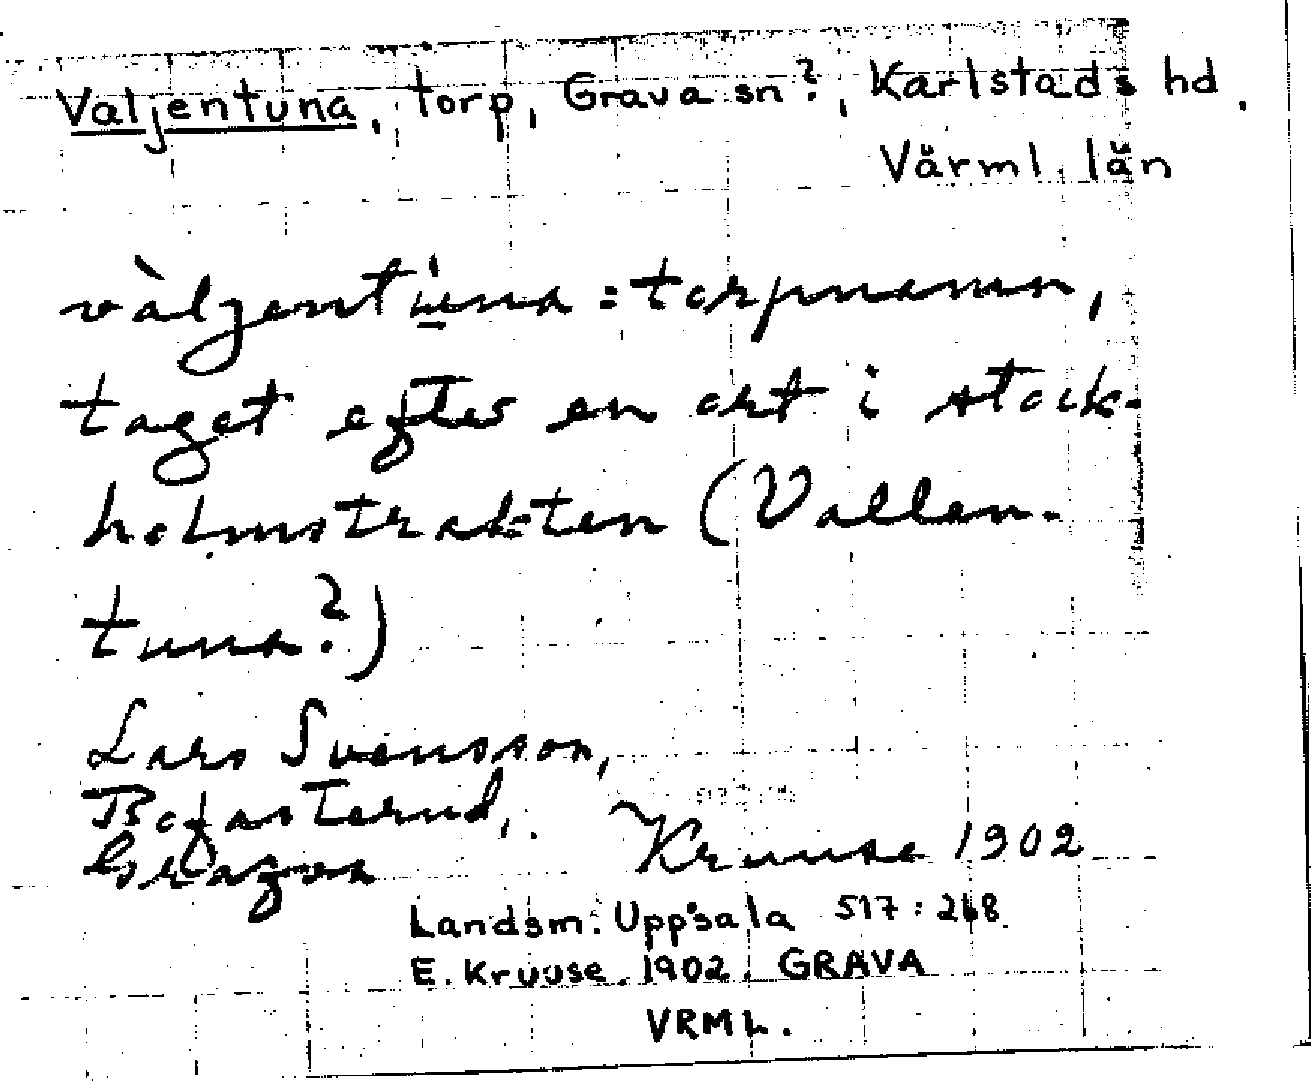 Valjentuna, torp, Grava sn?, Karlstads hd.
Värml. län
vàljentu̱na = torpnamn,
taget efter en ort i stock-
holmstrakten (Vallen-
tuna?)
Lars Svensson,
Kruuse 1902
Landsm. Uppsala 517:268
E. Kruuse. 1902. GRAVA
VRML.